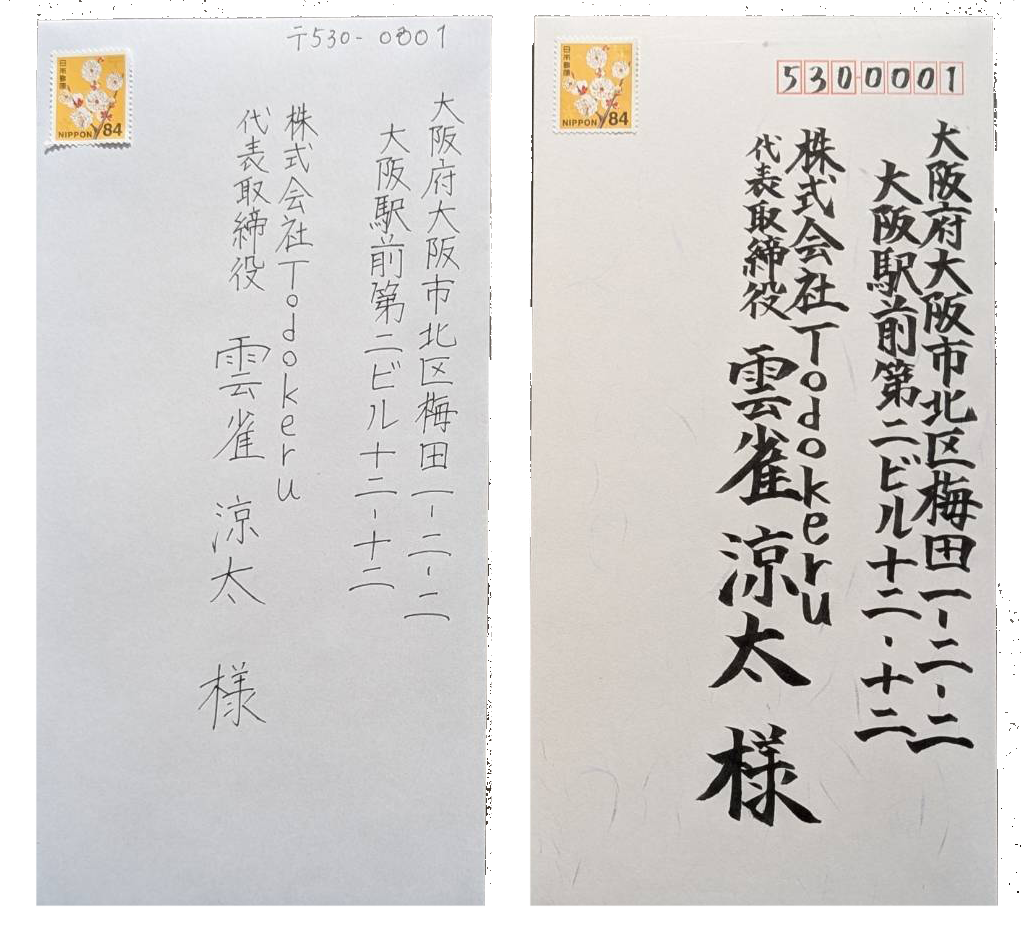 〒530-0001
大阪府大阪市北区梅田一-二-二
大阪駅前第二ビル十二-十二
株式会社Todokeru
代表取締役 雲雀 涼太 様
日本郵便
NIPPON ¥84
530-0001
大阪府大阪市北区梅田一-二-二
大阪駅前第二ビル十二-十二
株式会社Todokeru
代表取締役 雲雀 涼太 様
日本郵便
NIPPON ¥84